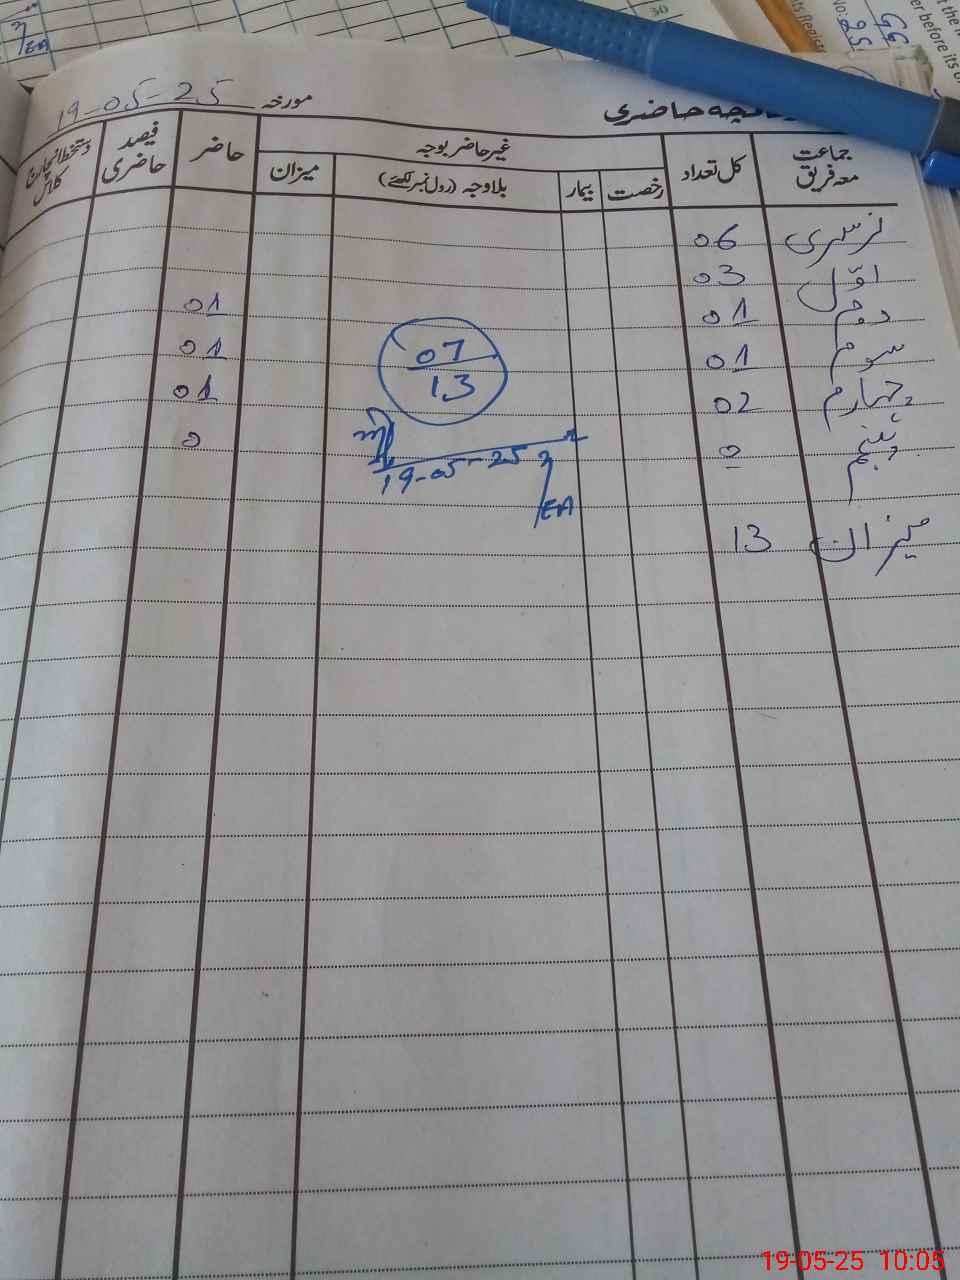 30
EA
چہ حاضری
مورخہ 19-05-25
جماعت معہ فریق کل تعداد غیر حاضر بوجہ حاضر فیصد حاضری دستخط انچارج کلاس
رخصت بیمار بلاوجہ (رول نمبر لکھئے) میزان
نرسری 06
اوّل 03
دوم 01 01
سوم 01 01
چہارم 02 01
پنجم 0 0
میزان 13
07
13
19-05-25
EA
19-05-25 10:05